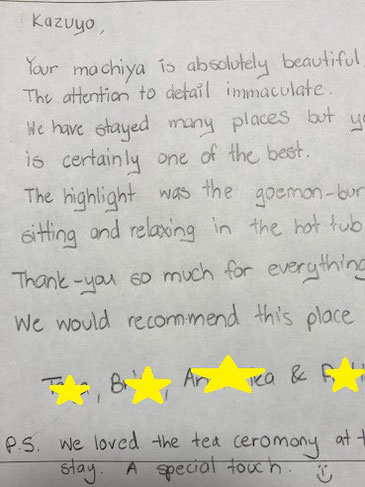 Kazuyo,
Your machiya is absolutely beautiful
The attention to detail immaculate.
We have stayed many places but
is certainly one of the best.
The highlight was the goemon-bur
sitting and relaxing in the hot tub
Thank-you so much for everything
We would recommend this place
&
P.S. We loved the tea ceromony at
stay. A special touch.